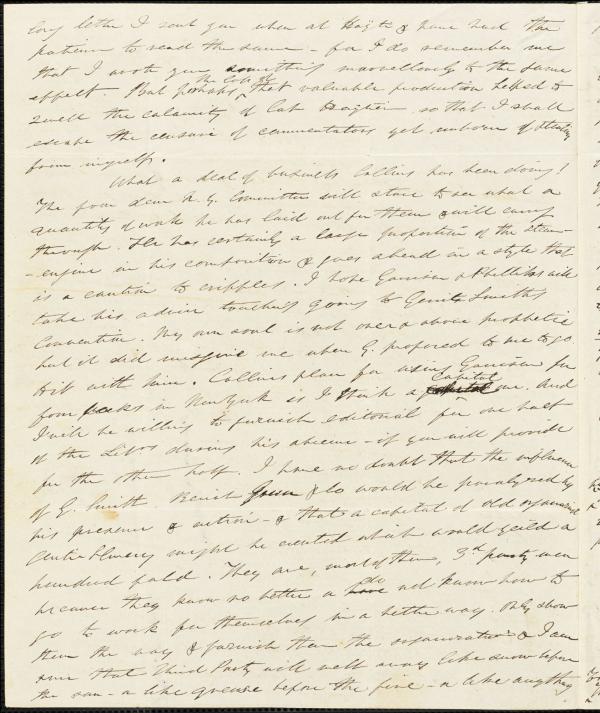 long letter I sent you when at Hayti & have had the
patience to read the same – for I do remember me
that I wrote you something marvellously to the same
effect. – But perhaps, the loss of that valuable production helped to
swell the calamity of Cap Haytien so that I shall
escape the censure of commentators yet unborn of stealing
from myself.
What a deal of business Collins has been doing!
The poor dear N. Y. Committee will stare to see what a
quantity of work he has laid out for them & will carry
through. He has certainly a large proportion of the steam-
-engine in his composition & goes ahead in a style that
is a caution to cripples. I hope Garrison & Phillips will
take his advice touching going to Gerrit Smith's
Convention. My own soul is not over & above prophetic
but it did misgive me when G. proposed to me to go
with him. Collins plan for using Garrison for
four weeks in New York is I think a capital one. And
I will be willing to furnish editorial for one half
of the Libʳˢ during his absence – if you will provide
for the other half. I have no doubt that the influence
of G. Smith & Co would be paralyzed by
his presence & action – & that a capital of old organized
Anti-Slavery might be created which would yield a
hundred fold. They are, most of them, 3ᵈ party men
because they know no better & do not know how to
go to work for themselves in a better way. Only show
them the way & furnish them the organization & I am
sure that Third Party will melt away like snow before
the sun – or like grease before the fire – or like anything